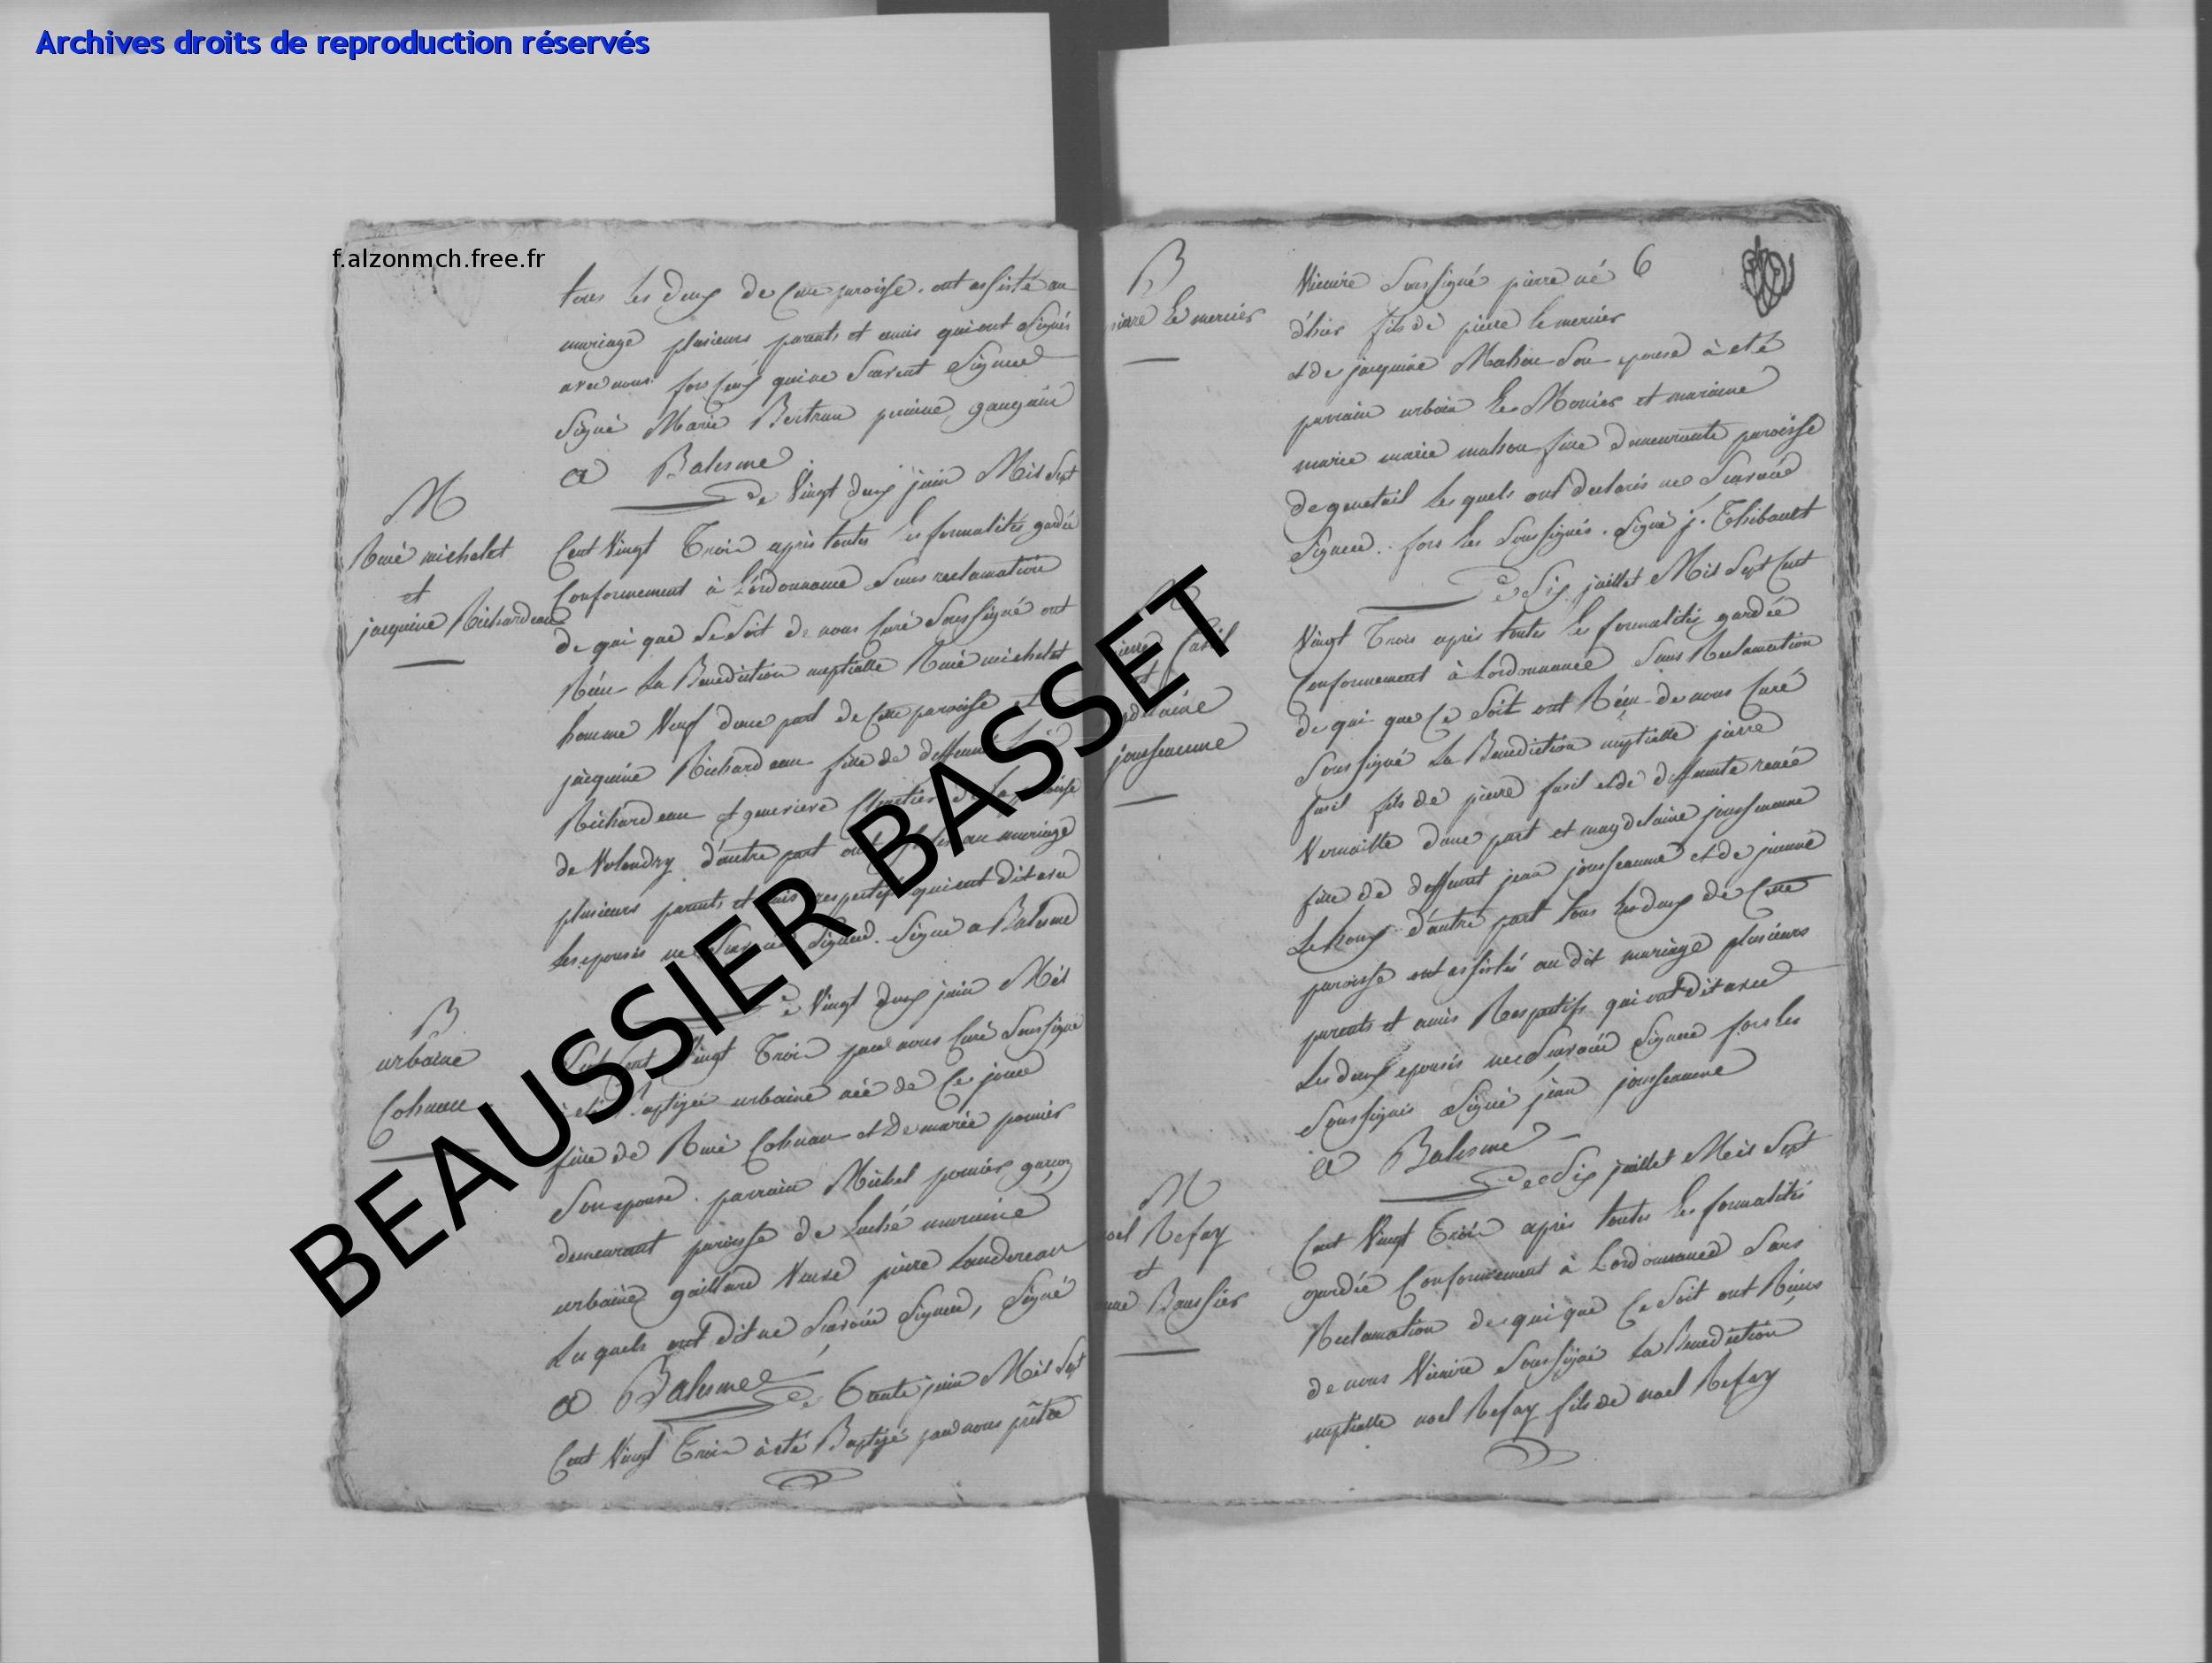 Archives droits de reproduction réservés
f.alzonmch.free.fr
BEAUSSIER BASSET
tous les deux de cette paroisse. ont assisté au
mariage plusieurs parents et amis qui ont signés
avec nous fors ceux qui ne scavent signer
signé Marie Bertran
a Balesme
M
René michelet
et
jacquine Richardeau
Le Vingt deux juin Mil sept
Cent Vingt Trois après toutes les formalités gardée
Conformement à L'ordonnance sans reclamation
de qui que ce soit de nous Curé soussigné ont
Réçu La Benediction nuptialle René michelet
homme Veuf d'une part de cette paroisse et
jacquine Richardeau fille de deffeunt
Richardeau et genevieve de la paroisse
de Volandry d'autre part ont au mariage
plusieurs parents et amis respectifs qui ont dit avec
les epousés ne signer. signé a Balesme
B
urbaine
Cohueau
Le Vingt deux juin Mil
Sept Cent Vingt Trois par nous Curé soussigné
à eté Baptizée urbaine née de ce jour
fille de René Cohuau et de marie
son epouse. parrain Michel garçon
demeurant paroisse de Luché maraine
urbaine gaillard Veuve pierre Landereau
Les quels ont dit ne scavoir signer, signé
a Balesme
Le Trente juin Mil sept
Cent Vingt Trois à eté Baptizé par nous prêtre
6
B
pierre Le mercier
Vicaire soussigné pierre né
d'hier fils de pierre le mercier
et de jacquine Mahou son epouse à eté
parrain urbain Le Monier et maraine
marie marie mahou fille demeurante paroisse
de genetail Les quels ont declarés ne scavoir
signer. fors les soussignés. signé j. Thibault
pierre fasil
et
magdelaine
jousseaume
Le dix juillet Mil sept Cent
Vingt Trois après toutes les formalités gardée
Conformement à Lordonnance sans Reclamation
de qui que ce soit ont Réçu de nous Curé
soussigné La Benediction nuptialle pierre
fasil fils de pierre fasil et de deffeunte renée
Vernaille d'une part et magdelaine jousseaume
fille de deffeunt jean jousseaume et de
d'autre part tous les deux de cette
paroisse ont assistés au dit mariage plusieurs
parents et amis Respectifs qui ont dit avec
Les deux epousés ne scavoir signer fors les
soussignés signé jean jousseaume
a Balesme
M
noel Refay
et
Baussier
Le dix juillet Mil sept
Cent Vingt Trois après toutes les formalités
gardée Conformement à Lordonnance sans
Reclamation de qui que ce soit ont Réçus
de nous Vicaire soussigné La Benediction
nuptialle noel Refay fils de noel Refay